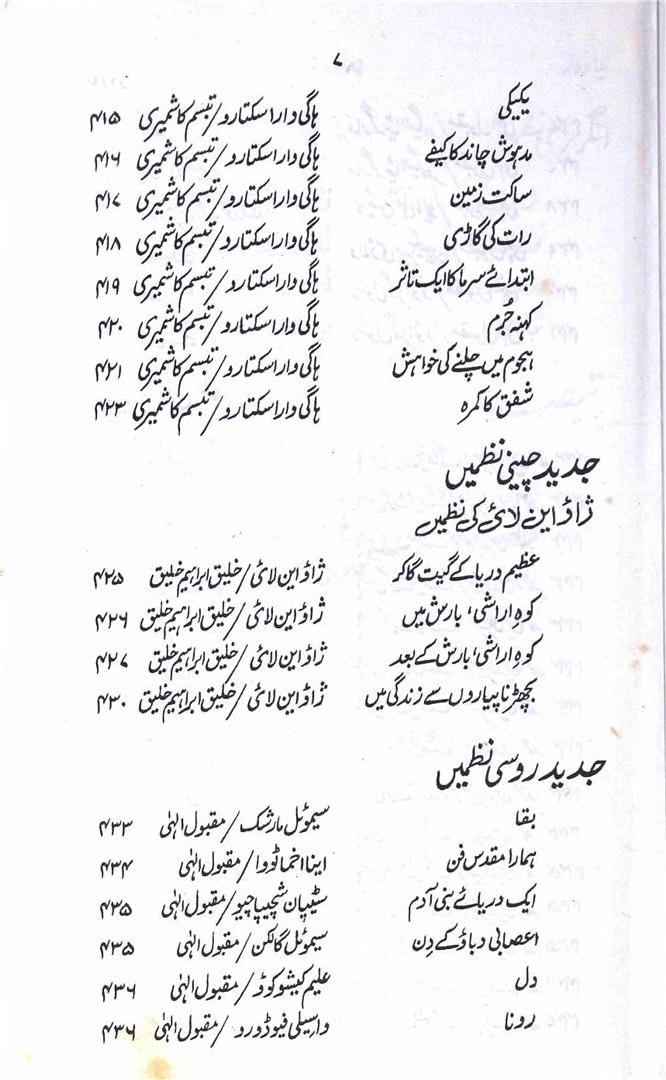 ۷
یکیکی ہاگی وارا سکتارو/تبسم کاشمیری ۴۱۵
مدہوش چاند کا کیفے ہاگی وارا سکتارو/تبسم کاشمیری ۴۱۶
ساکت زمین ہاگی وارا سکتارو/تبسم کاشمیری ۴۱۷
رات کی گاڑی ہاگی وارا سکتارو/تبسم کاشمیری ۴۱۸
ابتدائے سرما کا ایک تاثر ہاگی وارا سکتارو/تبسم کاشمیری ۴۱۹
کہنہ جُرم ہاگی وارا سکتارو/تبسم کاشمیری ۴۲۰
ہجوم میں چلنے کی خواہش ہاگی وارا سکتارو/تبسم کاشمیری ۴۲۱
شفق کا کمرہ ہاگی وارا سکتارو/تبسم کاشمیری ۴۲۳
جدید چینی نظمیں
ژاؤ این لائی کی نظمیں
عظیم دریا کے گیت گا کر ژاؤ این لائی/خلیق ابراہیم خلیق ۴۲۵
کوہِ اراشی، بارش میں ژاؤ این لائی/خلیق ابراہیم خلیق ۴۲۶
کوہِ اراشی، بارش کے بعد ژاؤ این لائی/خلیق ابراہیم خلیق ۴۲۷
بچھڑنا پیاروں سے زندگی میں ژاؤ این لائی/خلیق ابراہیم خلیق ۴۳۰
جدید روسی نظمیں
بقا سیموئل مارشک/مقبول الٰہی ۴۳۳
ہمارا مقدس فن اینا اخماٹووا/مقبول الٰہی ۴۳۴
ایک دریائے بنی آدم سٹیپان شچیپاچیو/مقبول الٰہی ۴۳۵
اعصابی دباؤ کے دِن سیموئل گالکن/مقبول الٰہی ۴۳۵
دل علیم کیشوکوڈ/مقبول الٰہی ۴۳۶
رونا واسیلی فیوڈورو/مقبول الٰہی ۴۳۶